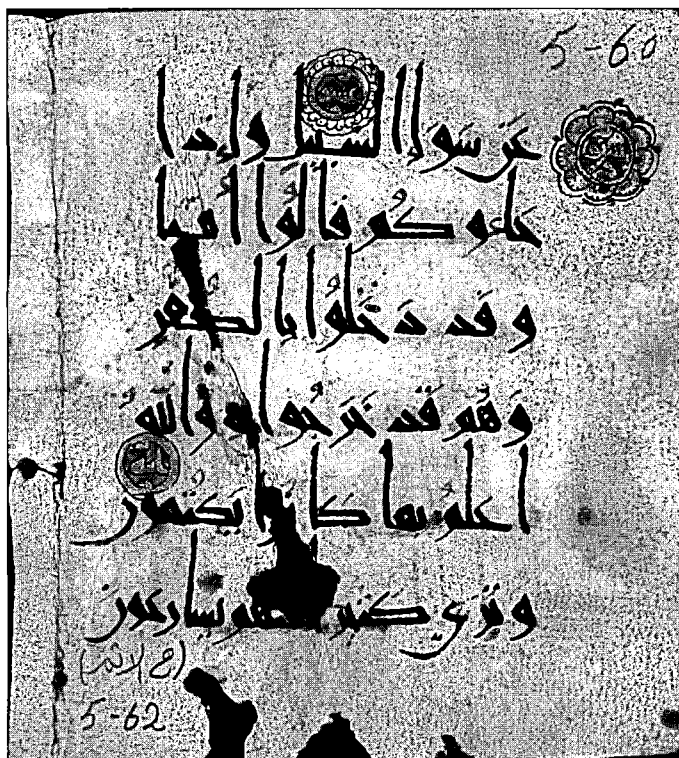 5-60
عَن سَوَاءِ السبيل وإذا
جاءوكُم قالُوا آمنا
وقَد دَخَلُوا بالكُفرِ
وَهُم قَد خَرَجُوا بِهِ وَاللهُ
اعلمُ بما كانُوا يَكتُمون
وتَرَى كثيرا منهم يسارعون
(في الاثم)
5-62